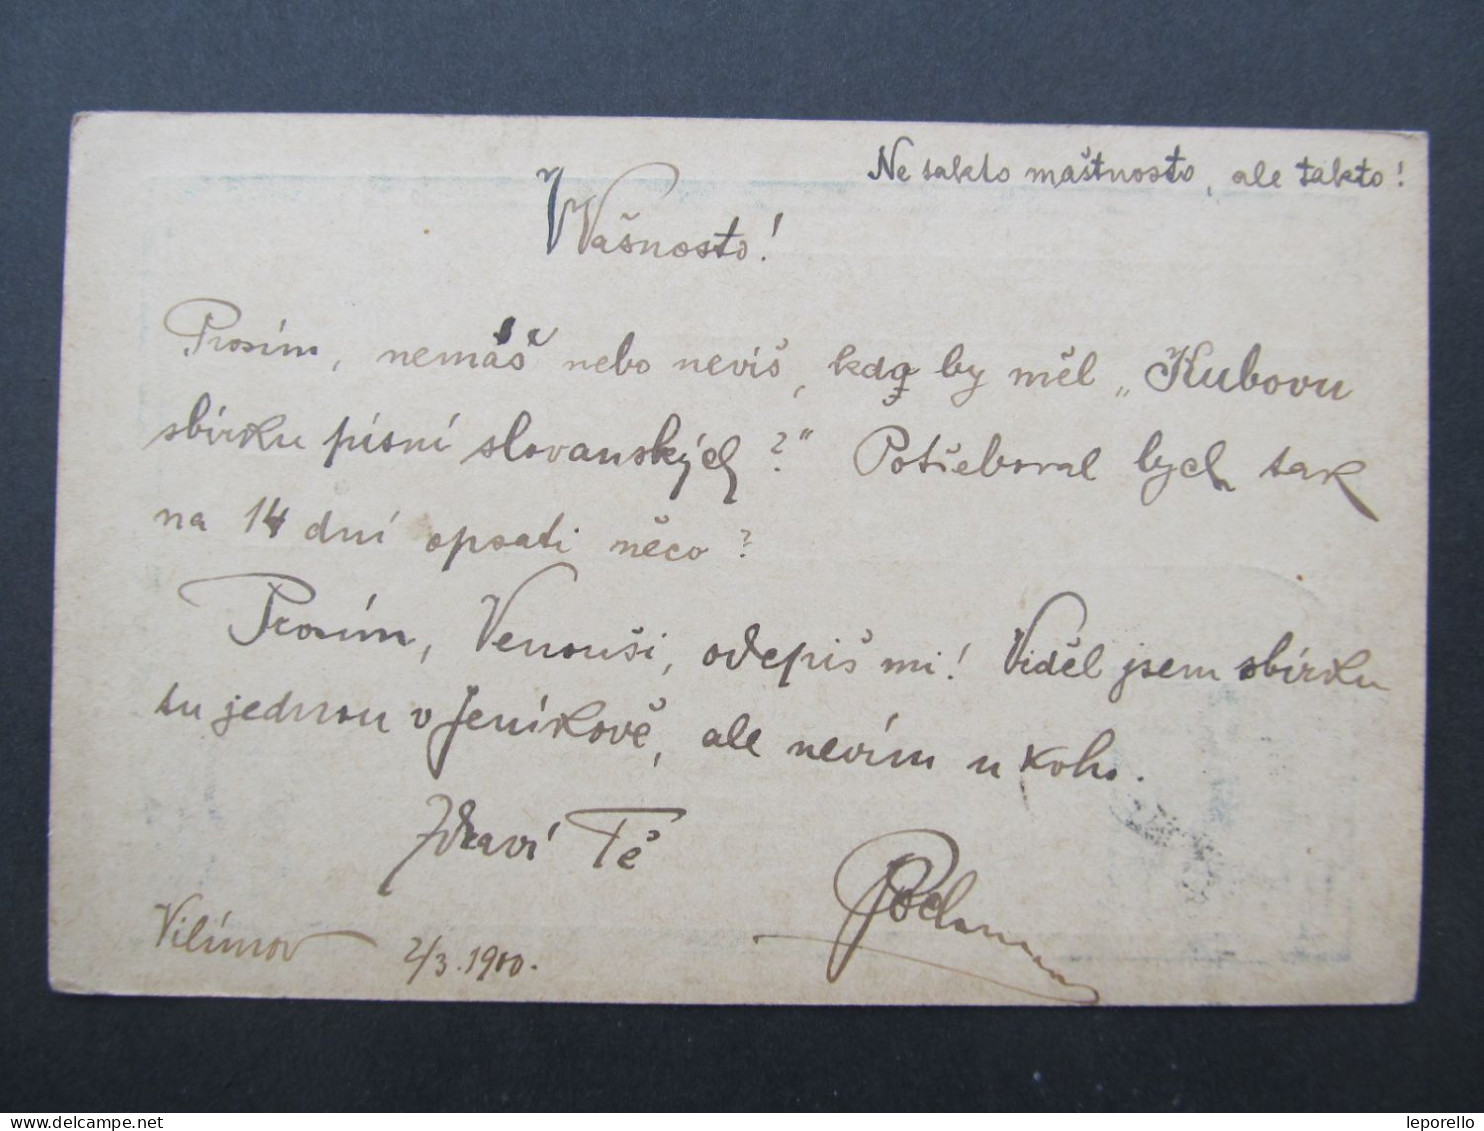 Ne takto maštnosto, ale takto!
Vašnosto!
Prosím, nemáš nebo nevíš, kdo by měl „Kubovu
sbírku písní slovanských?" Potřeboval bych tak
na 14 dní opsati něco?
Prosím, Venouši, odepiš mi! Viděl jsem sbírku
tu jednou v Jeníkově, ale nevím u koho.
Zdraví Tě
Vilímov 2/3. 1900.
leporello
delcampe.net